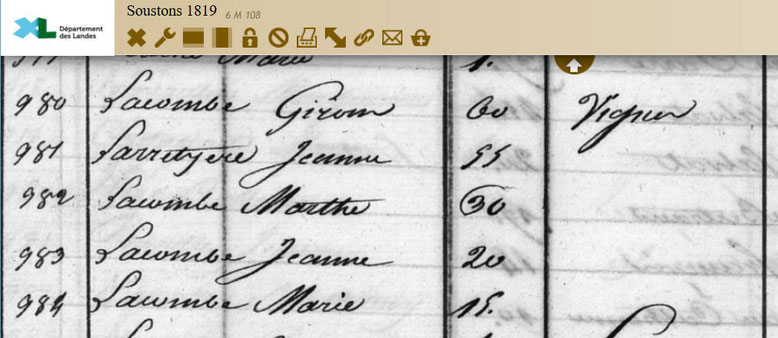 Département
des Landes
Soustons 1819 6 M 108
Marie 1.
980 Lacombe Girom 60 Vigner
981 Larretgere Jeanne 55
982 Lacombe Marthe 30
983 Lacombe Jeanne 20
984 Lacombe Marie 15.